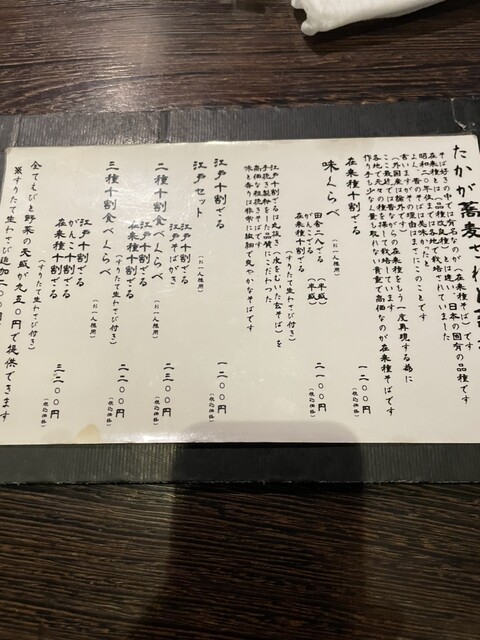 たかが蕎麦されど
そば好きの中では有名なのが(在来種そば)です
在来種とは(品種改良種)とは違い、日本の固有の品種です
昭和二〇年位までは各地で栽培されていました
よく、昔のそばは美味かったと
言いますが、その理由はまさにこのことです
ここ最近、これらの在来種をもう一度再現する為に
各地で元々の種を探して栽培しています
作り手も少なく量も取れない貴重で高価なのが在来種そばです
在来種十割ざる
一二〇〇円
(税込価格)
味くらべ
(お一人様用)
田舎二八ざる
(半盛)
がんこ十割ざる
在来種十割ざる
(半盛)
(すりたて生わさび付き)
一二〇〇円
(税込価格)
江戸十割ざるは丸抜き(皮をむいた玄そば)を
手挽きし製粉方法にこだわった
高価な粗挽きそばです
味と香りは非常に繊細で爽やかなそばです
江戸十割ざる
一二〇〇円
(税込価格)
江戸セット
(お一人様用)
江戸十割ざる
江戸そばがき
(すりたて生わさび付き)
二三〇〇円
(税込価格)
二種十割食べくらべ
(お一人様用)
江戸十割ざる
在来種十割ざる
(すりたて生わさび付き)
二二〇〇円
(税込価格)
三種十割食べくらべ
(お一人様用)
江戸十割ざる
がんこ十割ざる
在来種十割ざる
(すりたて生わさび付き)
三二〇〇円
(税込価格)
全てえびと野菜の天盛が九五〇円で提供できます
※すりたて生わさび追加二〇〇円